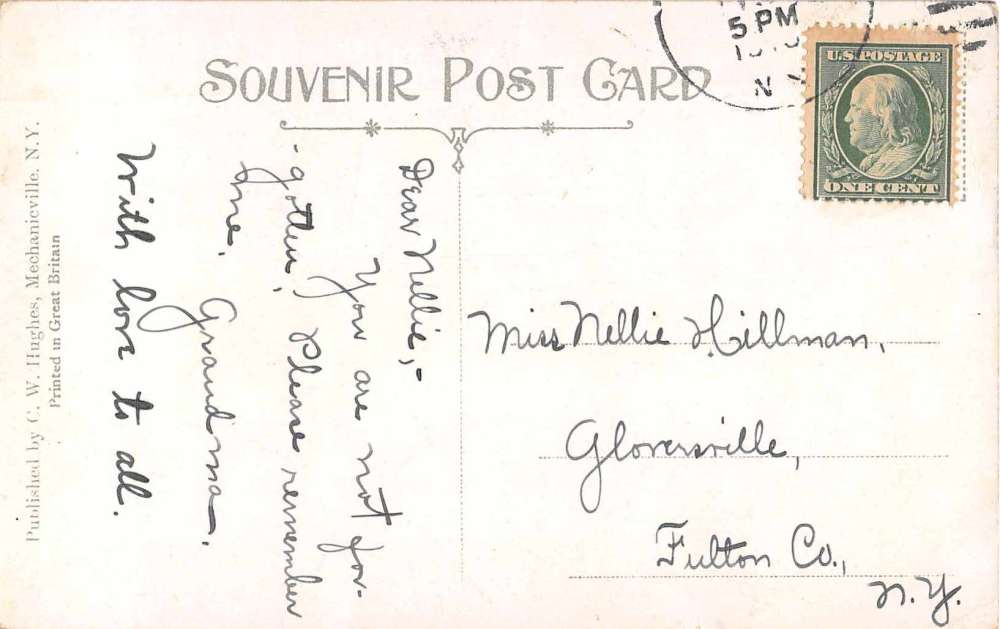 SOUVENIR POST CARD
5 PM
N Y
U.S. POSTAGE
ONE CENT
Dear Nellie,-
You are not for-
-gotten, Please remember
me. Grandma.
With love to all.
Miss Nellie Hillman,
Gloversville,
Fulton Co.,
N.Y.
Published by C. W. Hughes, Mechanicville, N.Y.
Printed in Great Britain